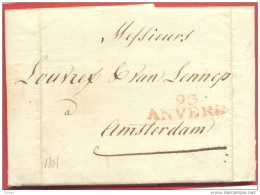 Messieurs
Louvret & van Lennep
à
93
ANVERS
Amsterdam
1801